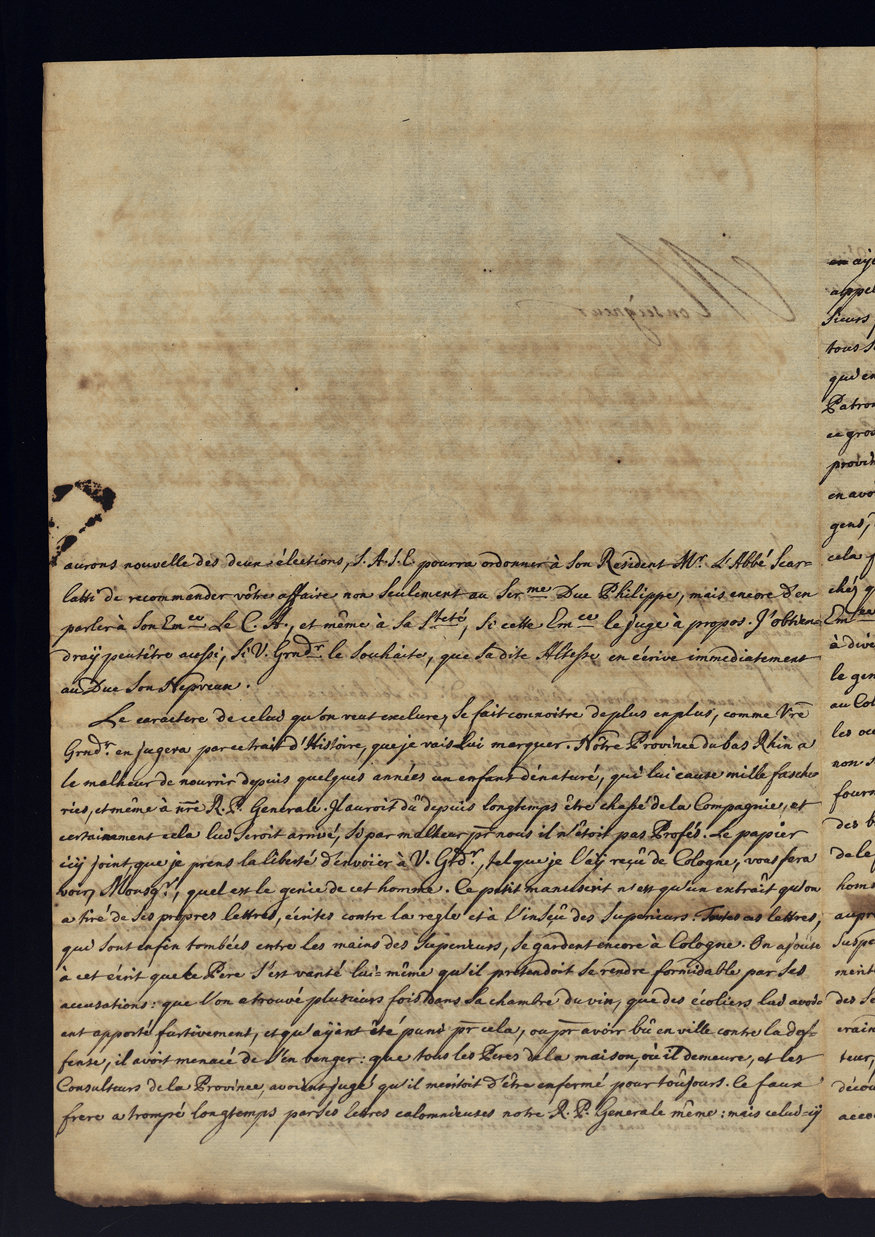 aurons nouvelle des deux élections, S. A. S. E. pourra ordonner à Son Resident Mr. L'Abbé Scar-
latti de recommander vôtre affaire non seulement au Ser.me Duc Philippe, mais encore d'en
parler à Son Em.ce Le C. A., et même à Sa S.teté, Si cette Em.ce le juge à propos. J'obtien-
draÿ peutêtre aussi, Si V. Grndr. le Souhaite, que Sadite Altesse en écrive immediatement
au Duc Son Nepveux.
Le caractere de celuÿ qu'on veut exclure, Se fait connoitre de plus en plus, comme Vre
Grndr. en jugera par ce trait d'Histoire, que je vais Lui marquer. Nôtre Province du bas Rhin a
le malheur de nourrir depuis quelques années un enfant dénaturé, qui lui cause mille fasche-
ries, et même à nre R. P. Generale. Il auroit dû depuis longtemps être chassé de la Compagnie, et
certainement cela luÿ Seroit arrivé, Si par malheur pr nous il n'étoit pas Profés. Le papier
icÿ joint, que je prens la liberté d'envoier à V. Grdr., tel que je l'aÿ reçu de Cologne, vous fera
voir, Monsgr., quel est le genie de cet homme. Ce petit manuscrit n'est qu'un extrait qu'on
a tiré de Ses propres lettres, écrites contre la regle et à l'insçû des Superieurs. Toutes ces lettres,
qui Sont enfin tombées entre les mains des Superieurs, Se gardent encore à Cologne. On ajoute
à cet écrit que le Pere S'est vanté lui-même qu'il pretendoit Se rendre formidable par Ses
accusations: que l'on a trouvé plusieurs fois dans Sa chambre du vin, que des écoliers luÿ avoi-
ent apporté furtivement, et qu'aÿent été puni pr cela, ou pr avoir bû en ville contre la def-
fense, il avoit menacé de S'en venger: que tous les Peres de la maison, où il demeure, et les
Consulteurs de la Province, avoient jugé qu'il meritoit d'être enfermé pour toûjours. Ce faux
frere a trompé longtemps par Ses lettres calomnieuses notre R. P. Generale même: mais celuÿ-cÿ
en
appel
Sieurs
tous
qui
Patron
ce
provin
en avo
gens,
cela
chés
Em.ce
à dive
le gen
au Col
les
non
fourn
des
de la
hom
aupr
Suspe
ment
des
erain
teur,
décou
acco
Monseigneur